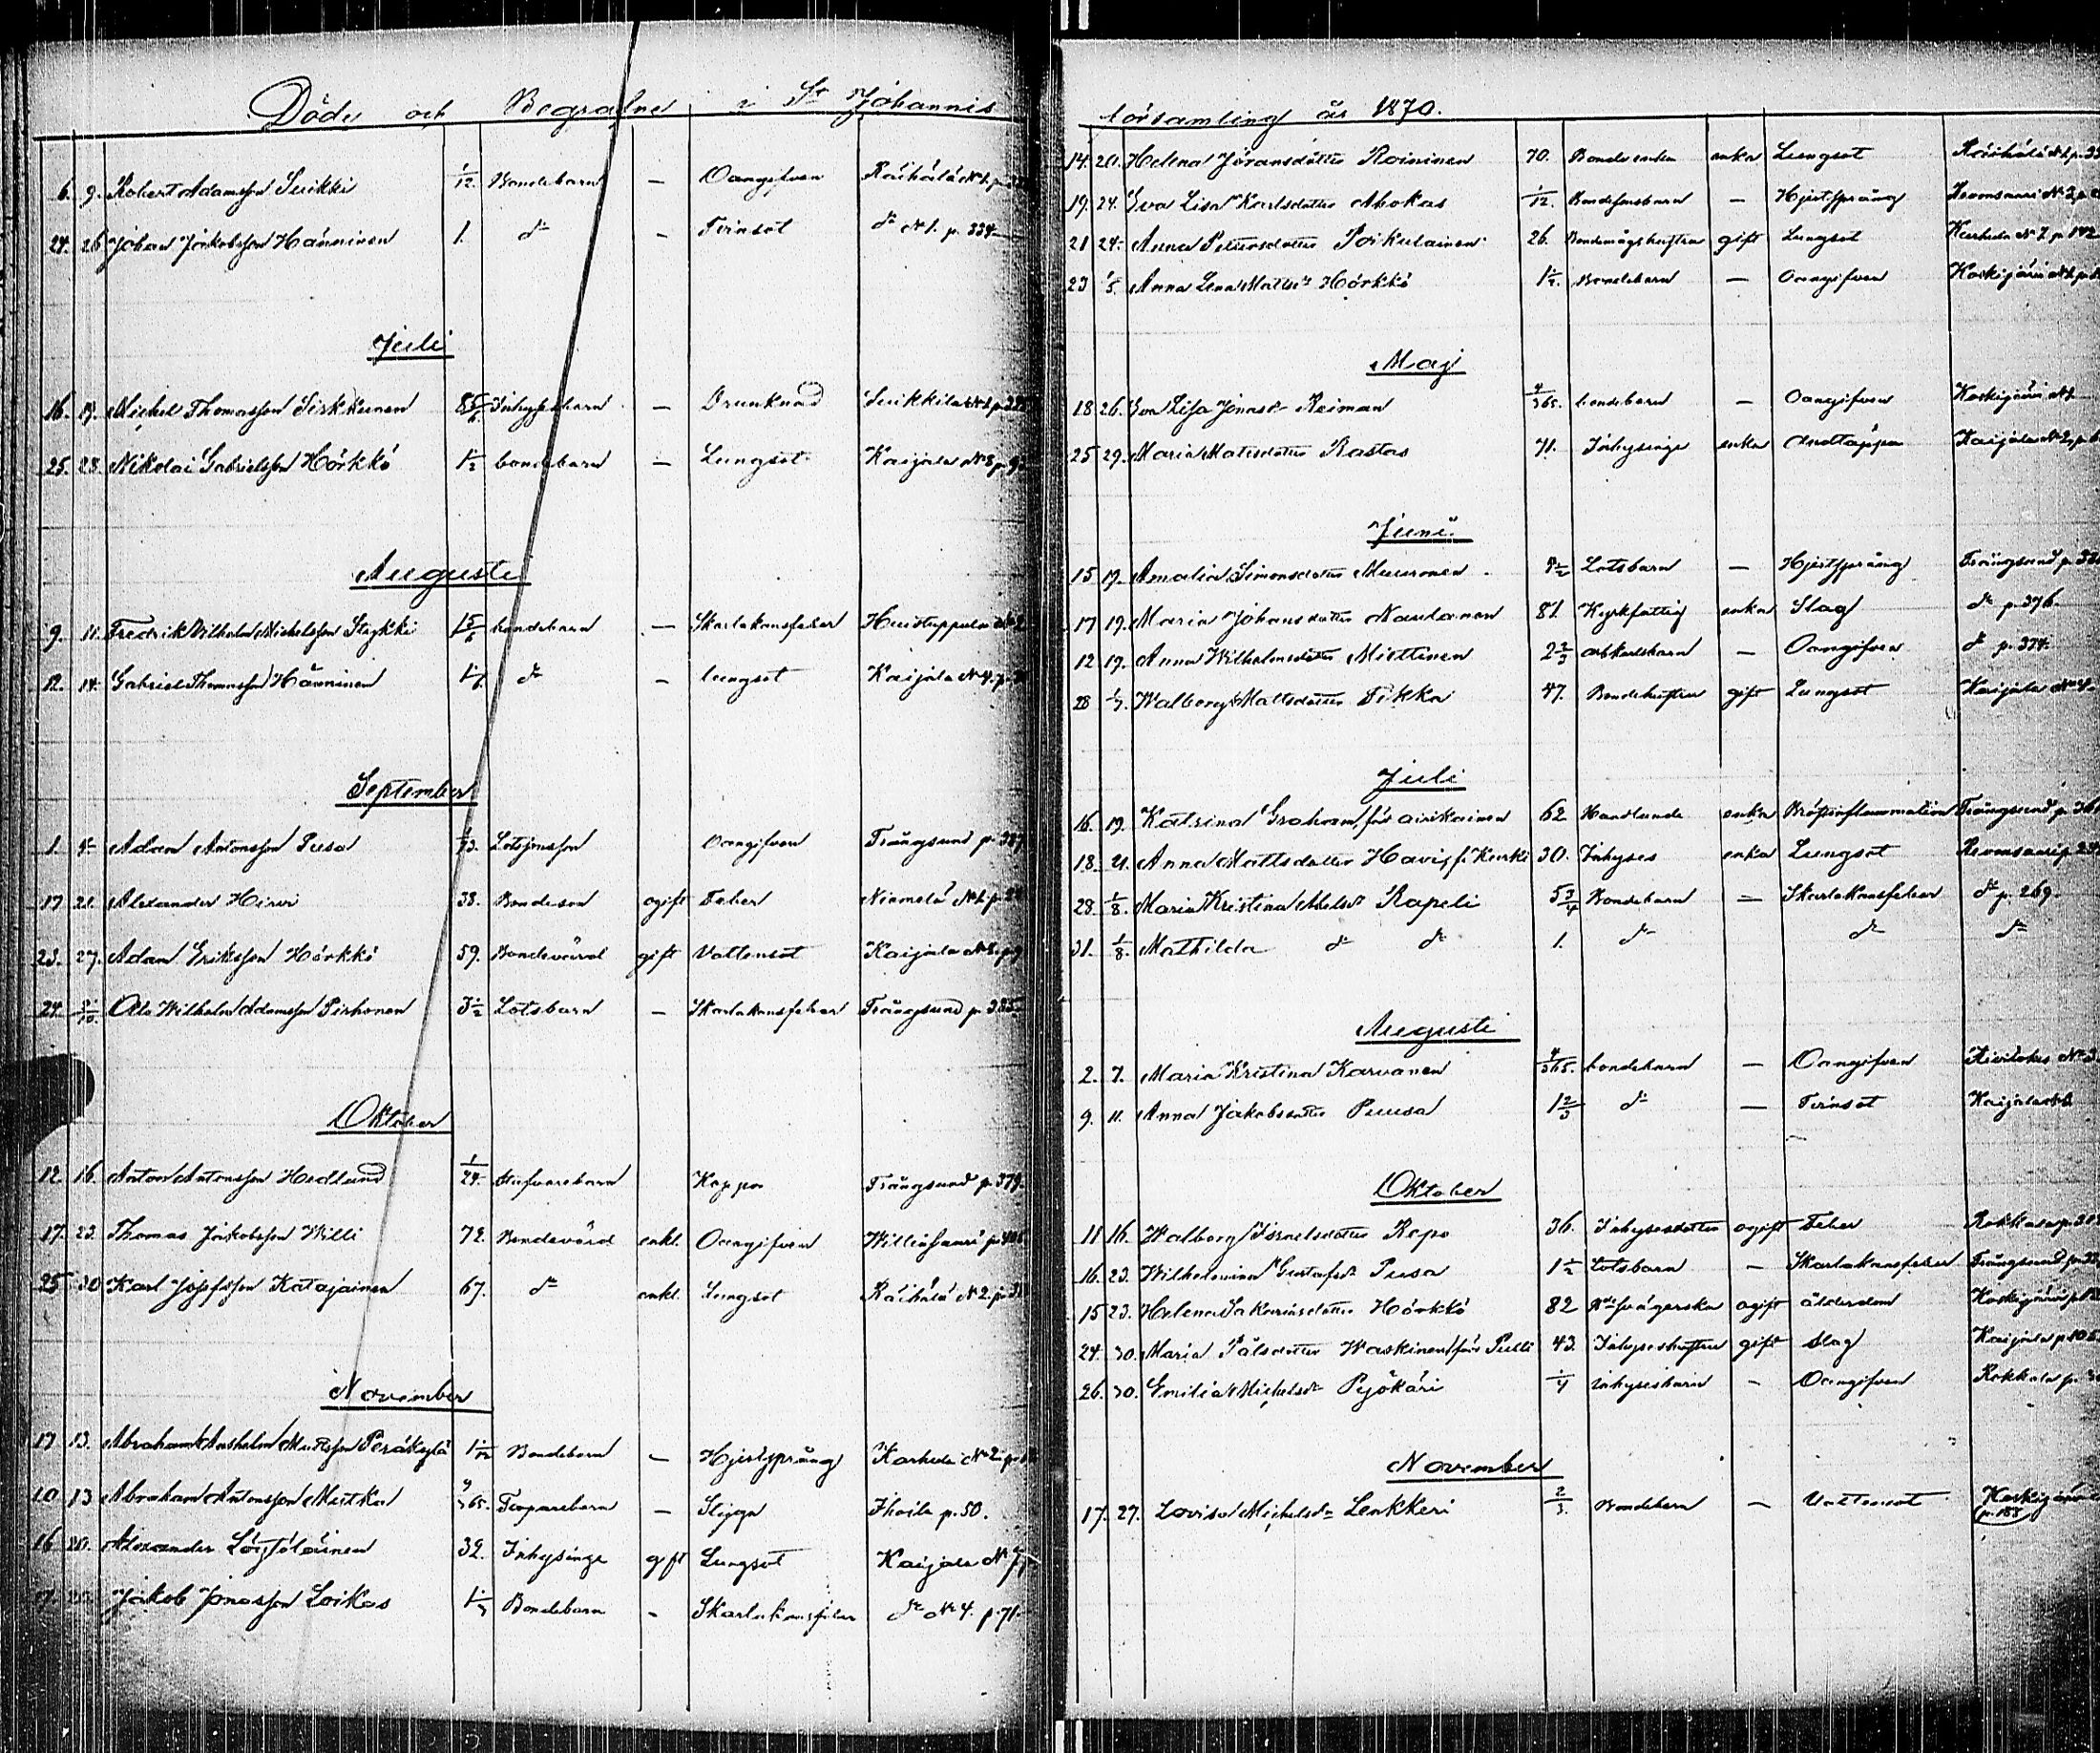 Döde och Begrafne i St Johannis
6. 9. Robert Adamsson Suikki 1/12. Bondebarn — Oangifven Räihälä No 1. p.
24. 26 Johan Jakobsson Hänninen 1. do - Tvinsot do No 1. p. 334
Juli
16. 19. Michel Thomasson Sirkkunen Inhysesbarn — Drunknad Suikkila
25. 28. Nikolai Gabrielsson Hörkkö 1 1/2 bondebarn — Lungsot Kaijala No 8 p.
Augusti
9. 11. Fredrik Vilhelm Michelsson Stykki 1 5/6 bondebarn — Skarlakansfeber
12. 14. Gabriel Thomasson Hänninen do - lungsot Kaijala No 4. p.
September
1. 4 Adam Antonsson Pusa Oangifven Trångsund p. 387
17 21. Alexander Hirvi 38. Bondeson ogift Feber Niemelä No 1. p.
23. 27. Adam Eriksson Hörkkö 59. Bondevärd gift Vattensot Kaijala No 8. p.
24. 2/10. Otto Wilhelm Adamsson Pirhonen 3 1/2 Lotsbarn — Skarlakansfeber Trångsund p. 385.
Oktober
12 16. Anton Antonsson Hedlund 1/24. Koppor Trångsund p. 379.
17. 23. Thomas Jakobsson Willi 72. Bondevärd enkl. Oangifven
25 30 Karl Josefsson Katajainen 67. do enkl. Lungsot Räihälä No 2. p.
November
13. Abraham Anshelm Mattsson Peräkylä Bondebarn — Hjertsprång Karhula No 2. p.
10 13 Abraham Antonsson Mutka 9/365. Torparebarn — Slegga Ihoila p. 50.
16 20. Alexander Löytöläinen 32. Inhysinge gift Lungsot Kaijala No 7
17. 20. Jakob Jonasson Loikas Bondebarn - Skarlakansfeber do No 4. p. 71.
församling år 1870.
14. 20. Helena Jöransdotter Roininen 70. Bonde enka enka Lungsot Räihälä No 1. p.
19. 24. Eva Lisa Karlsdotter Ahokas 1/12. Bondesonsbarn — Hjertsprång Revonsaari No 2 p.
21 24. Anna Petersdotter Poikulainen 26. Bondemågshustru gift Lungsot Karhula No 7. p. 142
23 1/5. Anna Lena Mattsdr Hörkkö 1 1/2. Bondebarn — Oangifven Koskijärvi No 1. p.
Maj
18 26. Eva Lisa Jönsdr Reiman 4/365. bondebarn — Oangifven Koskijärvi No
25 29. Maria Matsdotter Rastas 71. Inhysinge enka Andtäppa Kaijala No 2. p.
Juni.
15 19. Amalia Simonsdotter Muuronen Lotsbarn — Hjertsprång Trångsund p.
17 19. Maria Johansdotter Naulanen 81. Kyrkfattig enka Slag do p. 376.
12 19. Anna Wilhelmsdotter Miettinen 2 2/3 arbkarlsbarn — Oangifven do p. 374.
28 1/7. Walborg Mattsdotter Tikka 47. Bondehustru gift Lungsot Kaijala No 4.
Juli
16. 19. Katrina Graham för Airikainen 62 Handlande enka Bröstinflammation Trångsund p.
18. 21. Anna Mattsdotter Havi f. Kurki 30. Inhyses enka Lungsot Revonsaari p.
28. 1/8. Maria Kristina Abelsdr Rapeli 5 3/4 Bondebarn — Skarlakansfeber do p. 269.
31. 1/8. Mathilda do do 1. do do do
Augusti
2. 7. Maria Kristina Karvanen 4/365. bondebarn — Oangifven No
9. 11. Anna Jakobsdotter Puusa 1 2/3 do — Tvinsot Kaijala
Oktober
11 16. Walborg Israelsdotter Repo 36. Inhysesdotter ogift Feber Rokkala p.
16. 23. Wilhelmina Gustafsdr Pusa 1 1/2 Lotsbarn — Skarlakansfeber Trångsund p.
15 23. Helena Sakariasdotter Hörkkö 82 Bdesvägerska ogift ålderdom Koskijärvi p.
24. 30. Maria Pålsdotter Waskinen för Pulli 43. Inhyseshustru gift slag Kaijala p.
26. 30. Emilia Michelsdr Pyökäri 1/4 inhysesbarn - Oangifven Rokkala p.
November
17. 27. Lovisa Michelsdr Lenkkeri 2/3. Bondebarn — Vattensot Koskijärvi
p. 188